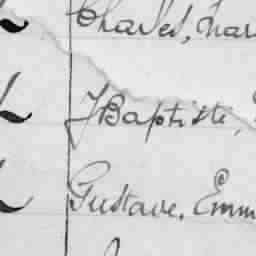 Charles,
JBaptiste,
Gustave, Emm